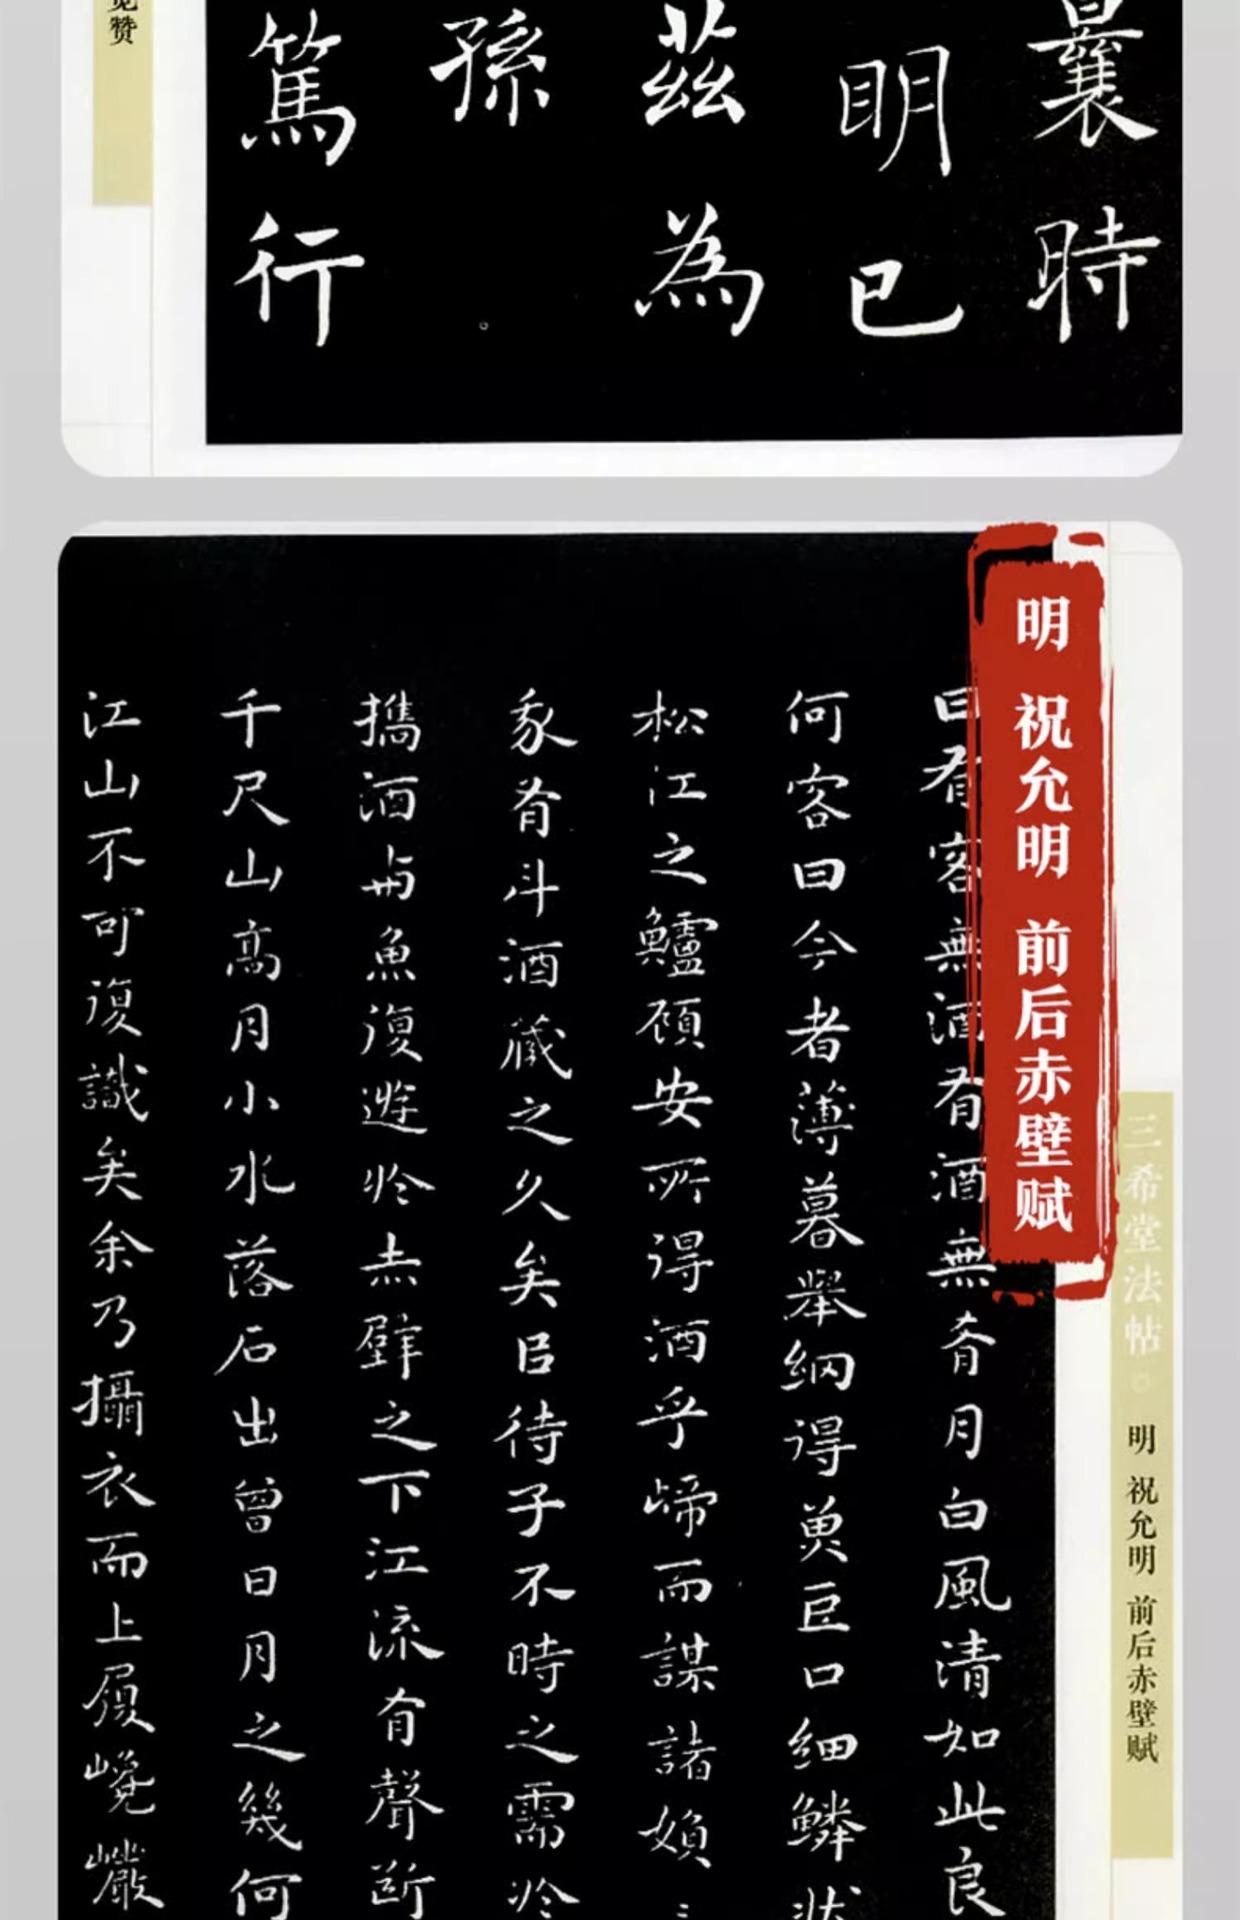 曩時
明已
茲為
孫
篤行
赞
明 祝允明 前后赤壁赋
三希堂法帖 明 祝允明 前后赤壁赋
曰有客無酒有酒無肴月白風清如此良
何客曰今者薄暮舉網得魚巨口細鱗狀
松江之鱸顧安所得酒乎歸而謀諸婦
家有斗酒藏之久矣㠯待子不時之需於
攜酒與魚復遊於赤壁之下江流有聲斷
千尺山高月小水落石出曾日月之幾何
江山不可復識矣余乃攝衣而上履巉巖